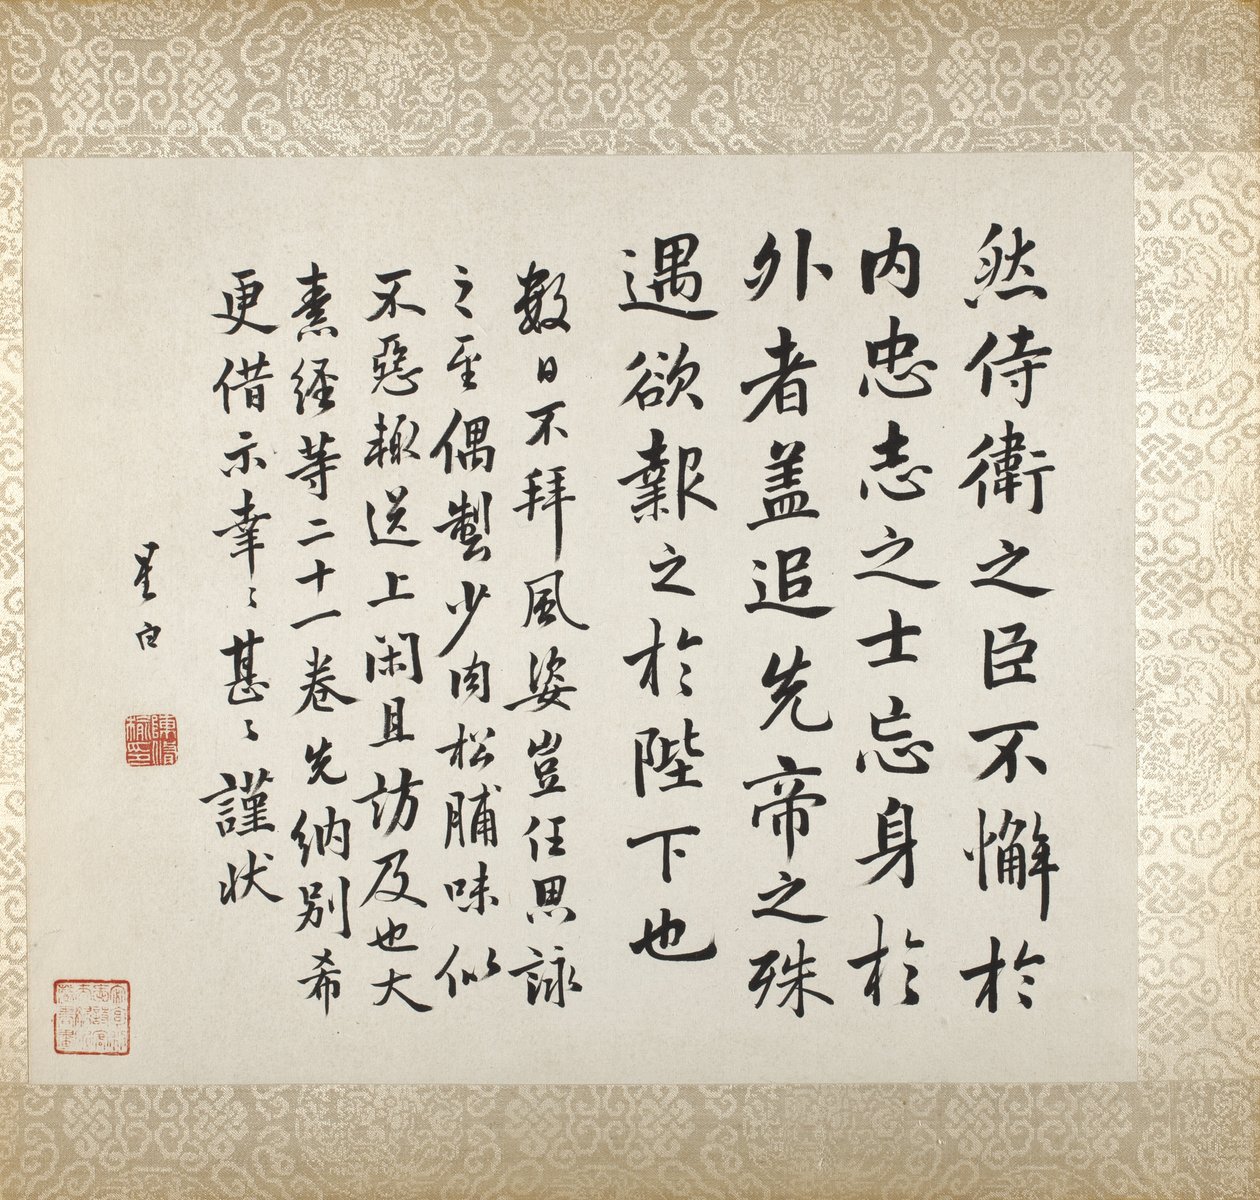 然侍衛之臣不懈於
内忠志之士忘身於
外者盖追先帝之殊
遇欲報之於陛下也
數日不拜風姿豈任思詠
之至偶製少肉松脯味似
不惡輙送上閑且訪及也大
素経等二十一卷先納別希
更借示幸〻甚〻謹状
白